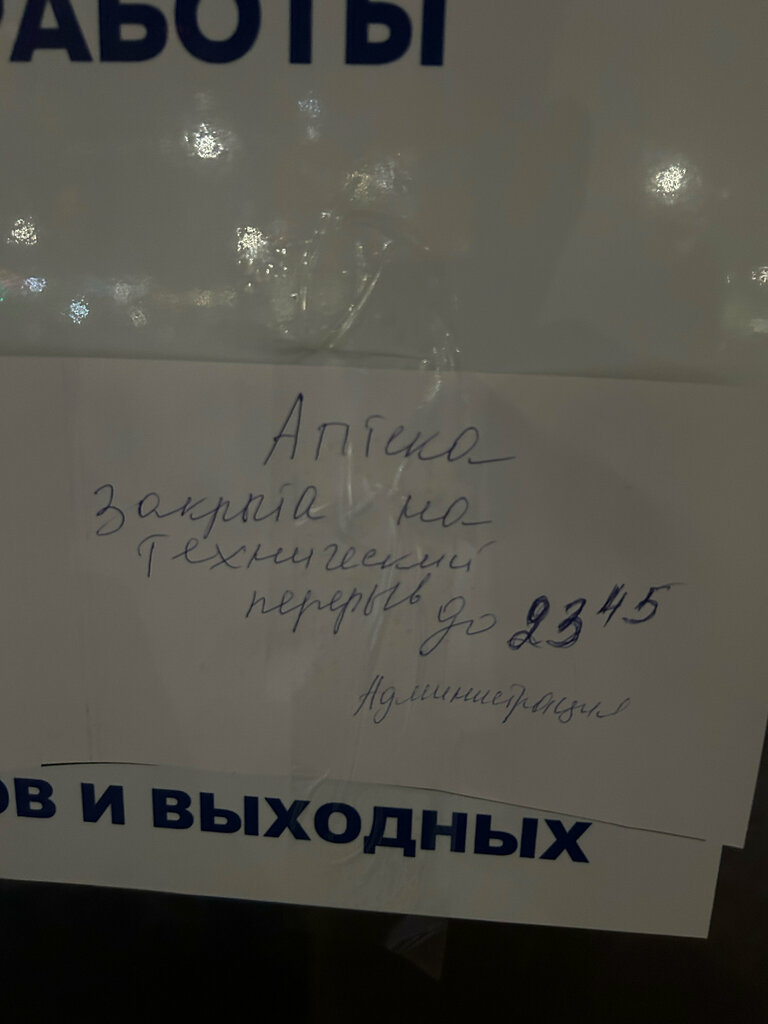 РАБОТЫ
Аптека
закрыта на
технический
перерыв до 23 45
Администрация
ОВ И ВЫХОДНЫХ